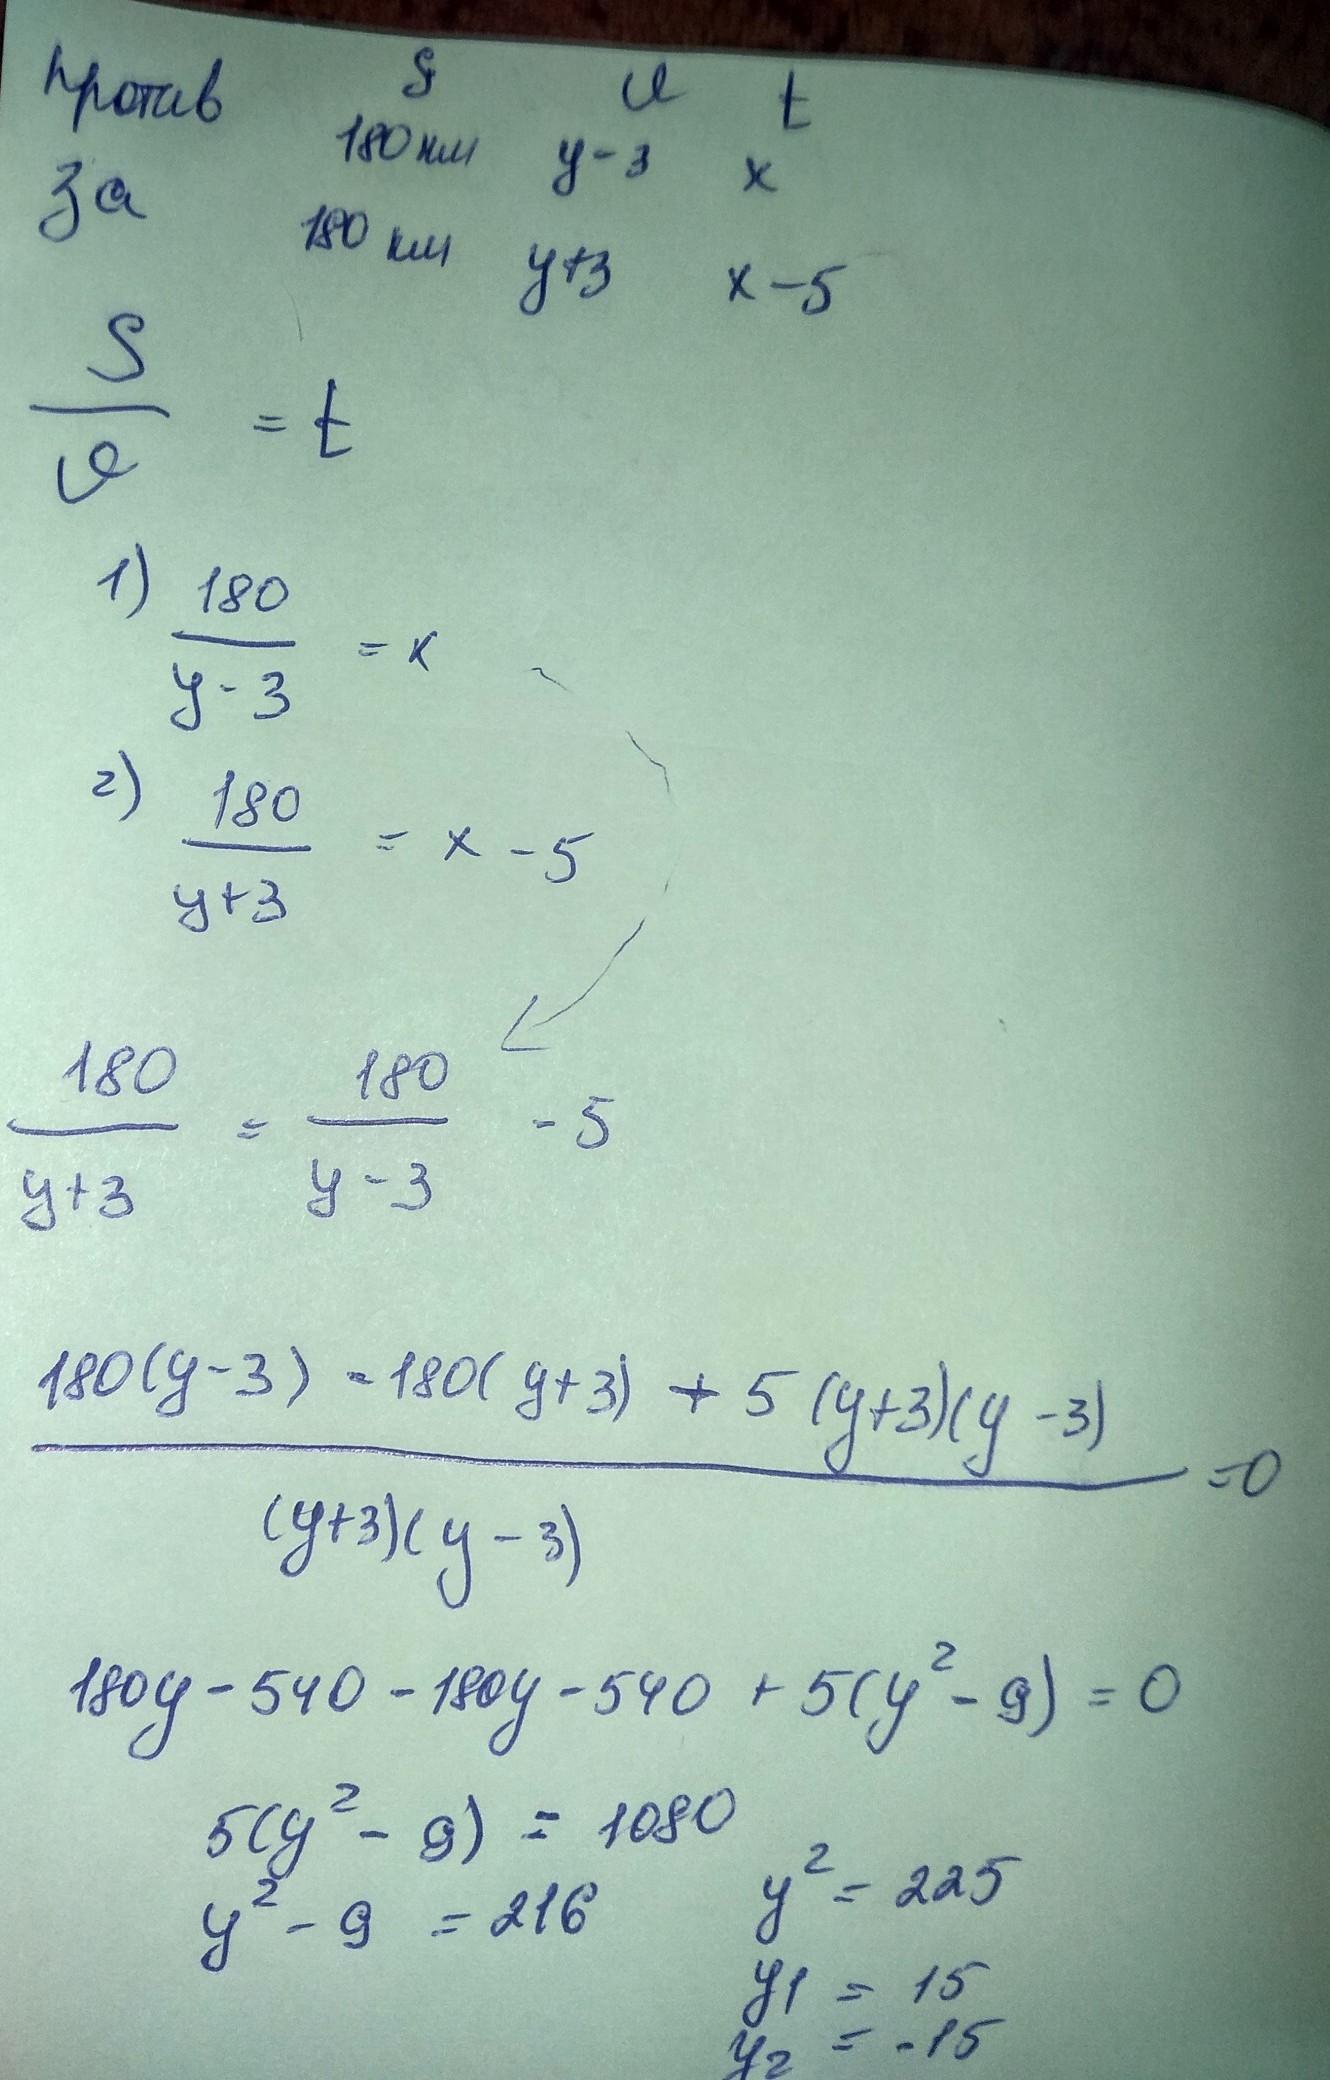 против S v t
180 км y-3 x
за 180 км y+3 x-5
S/v = t
1) 180/(y-3) = x
2) 180/(y+3) = x-5
180/(y+3) = 180/(y-3) -5
(180(y-3) - 180(y+3) + 5(y+3)(y-3))/((y+3)(y-3)) =0
180y - 540 - 180y - 540 + 5(y² - 9) = 0
5(y² - 9) = 1080
y² - 9 = 216
y² = 225
y1 = 15
y2 = -15